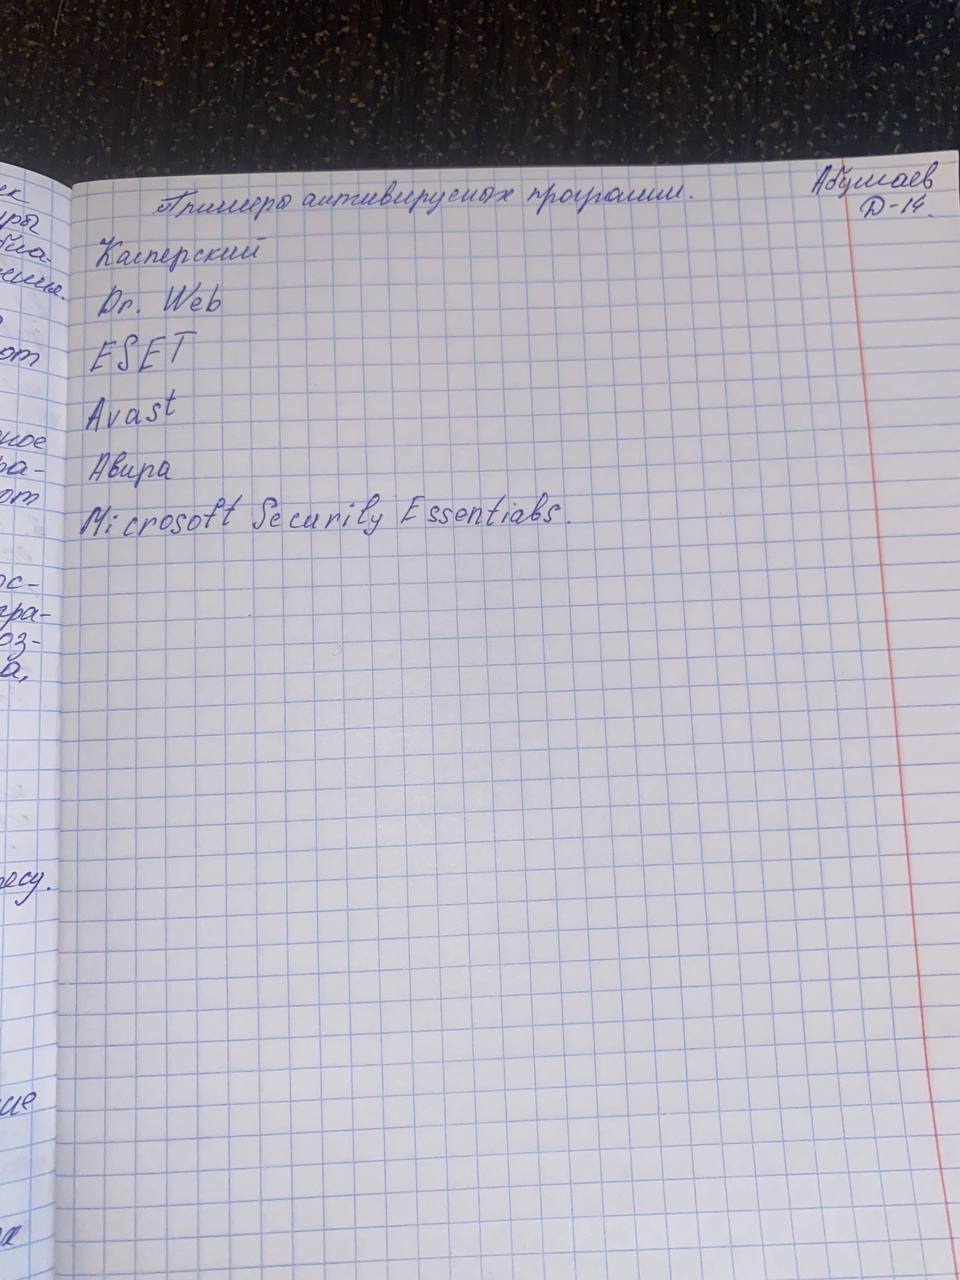 Примеры антивирусных программ.
Абушаев
Д-14.
Касперский
Dr. Web
ESET
Avast
Авира
Microsoft Security Essentiabs.
от
ное
ра-
от
ос-
гра-
оз-
а,